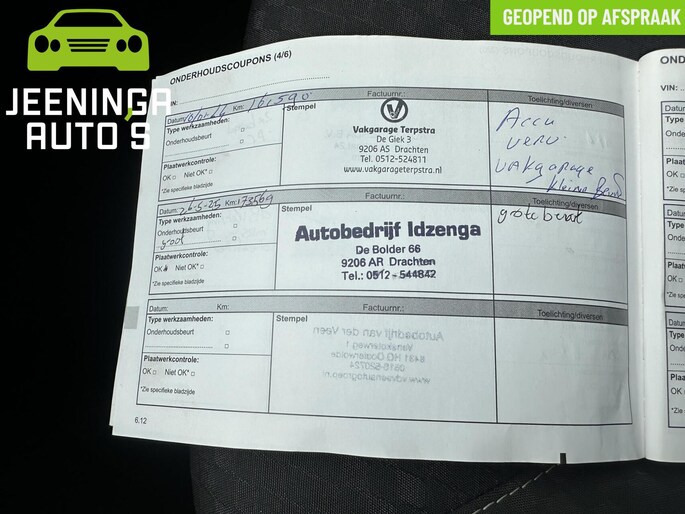 GEOPEND OP AFSPRAAK
JEENINGA
AUTO'S
ONDERHOUDSCOUPONS (4/6)
VIN:
Datum: Km: 161,590
Factuurnr.:
Toelichting/diversen
Type werkzaamheden:
Onderhoudsbeurt
Plaatwerkcontrole:
OK Niet OK*
*Zie specifieke bladzijde
Stempel
Vakgarage Terpstra
De Giek 3
9206 AS Drachten
Tel. 0512-524811
www.vakgarageterpstra.nl
Accu
verv.
vakgarage
kleine Beurt
Datum: 26-5-25 Km: 173569
Factuurnr.:
Toelichting/diversen
Type werkzaamheden:
Onderhoudsbeurt
groot
Plaatwerkcontrole:
OK Niet OK*
*Zie specifieke bladzijde
Stempel
Autobedrijf Idzenga
De Bolder 66
9206 AR Drachten
Tel.: 0512 - 544842
grote beurt
Datum: Km:
Factuurnr.:
Toelichting/diversen
Type werkzaamheden:
Onderhoudsbeurt
Plaatwerkcontrole:
OK Niet OK*
*Zie specifieke bladzijde
Stempel
6.12
VIN: